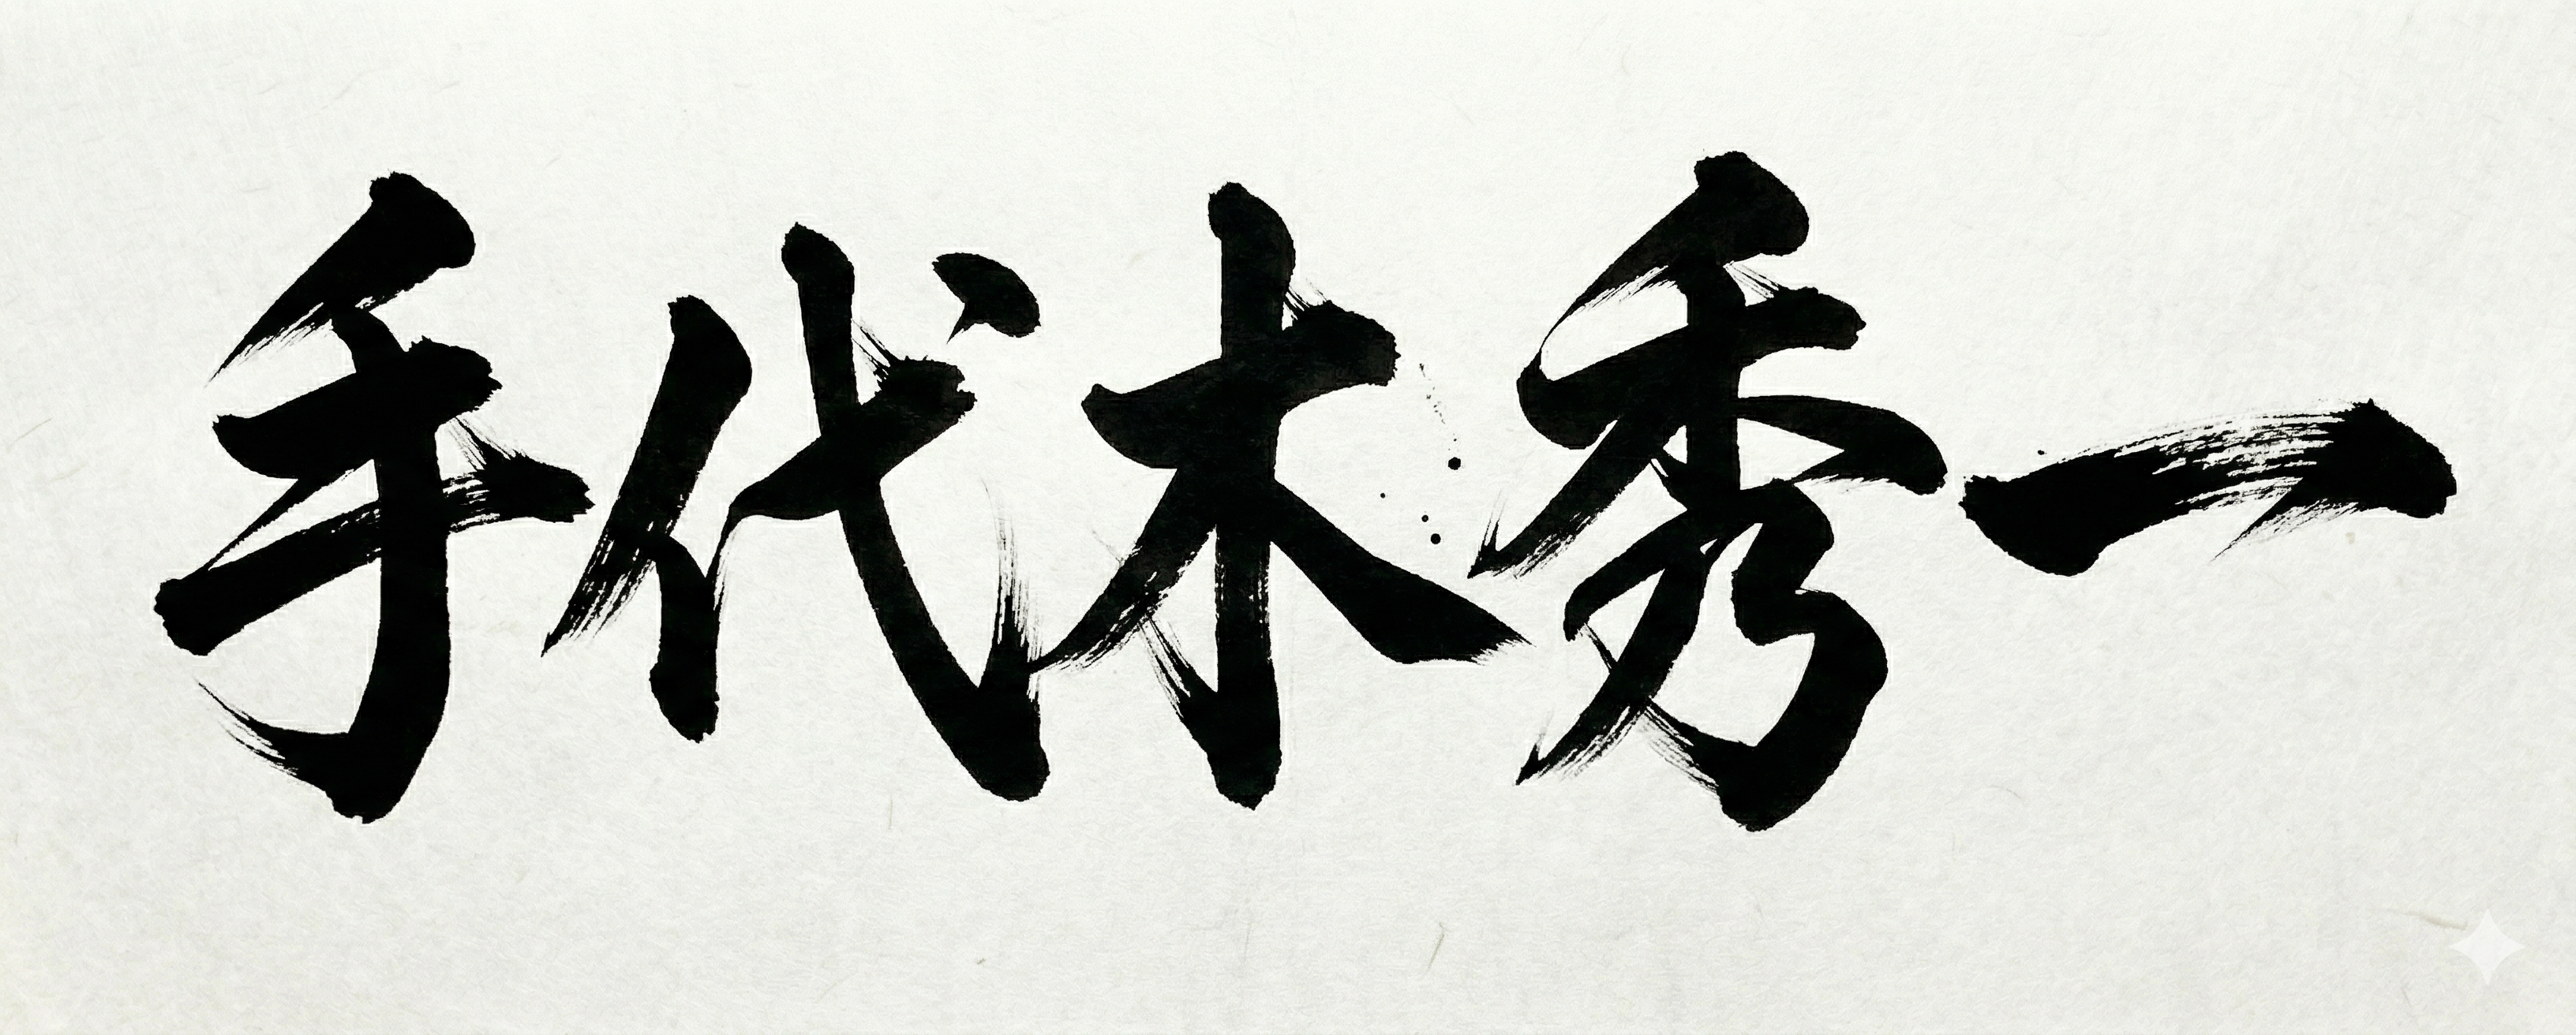 手代木秀一